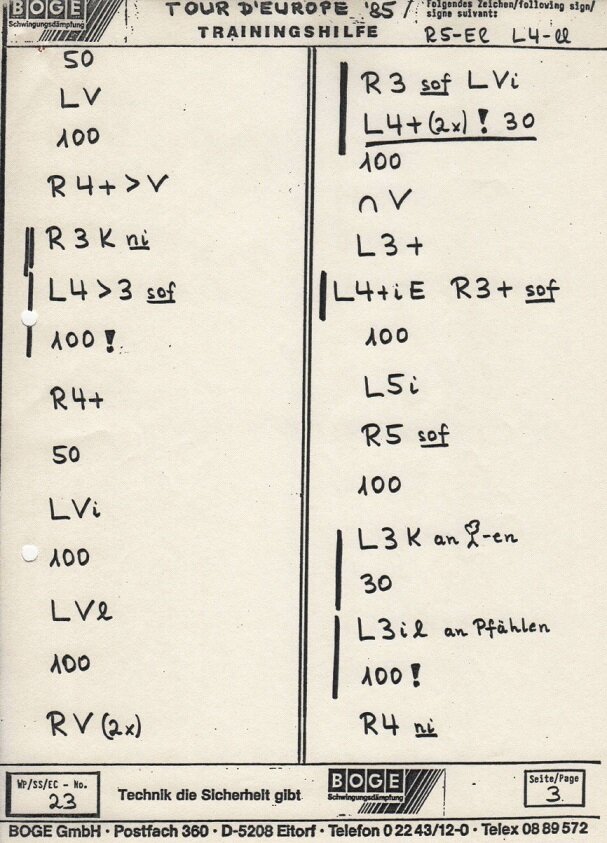 BOGE
Schwingungsdämpfung
TOUR D'EUROPE '85 /
TRAININGSHILFE
Folgendes Zeichen/following sign/
signe suivant:
50
LV
100
R4+>V
R3K ni
L4>3 sof
100!
R4+
50
LVi
100
LVl
100
RV (2x)
R3 sof LVi
L4+(2x)! 30
100
∩ V
L3+
L4+iE R3+ sof
100
L5i
R5 sof
100
L3K an -en
30
L3il an Pfählen
100!
R4 ni
WP/SS/EC - No.
23
Technik die Sicherheit gibt
BOGE
Schwingungsdämpfung
Seite/Page
3
BOGE GmbH · Postfach 360 · D-5208 Eitorf · Telefon 0 22 43/12-0 · Telex 08 89 572